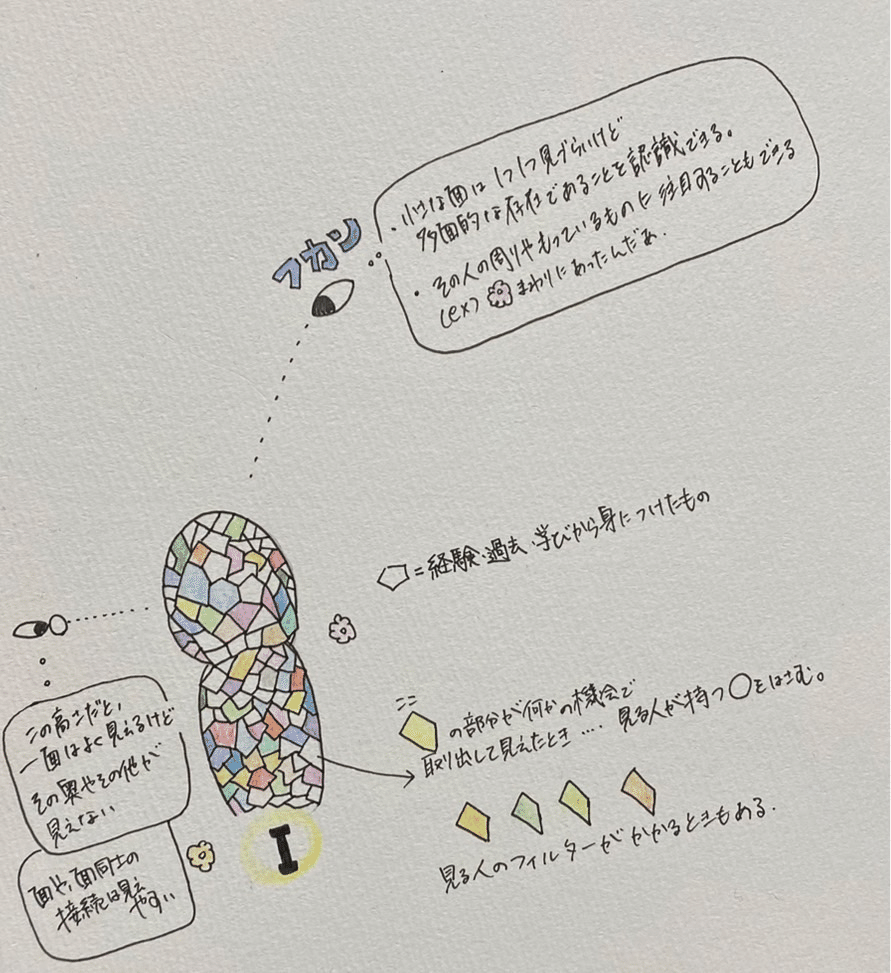 フカン
・小さな面は1つ1つ見づらいけど
多面的な存在であることを認識できる。
・その人の周りやもっているものに注目することもできる
(ex) まわりにあったんだぁ.
=経験・過去、学びから身につけたもの
ココ
の部分が何かの機会で
取り出して見えたとき…. 見る人が持つ○をはさむ。
見る人のフィルターがかかるときもある.
この高さだと、
一面はよく見えるけど
その奥やその他が
見えない
面や、面同士の
接続は見え
やすい
I